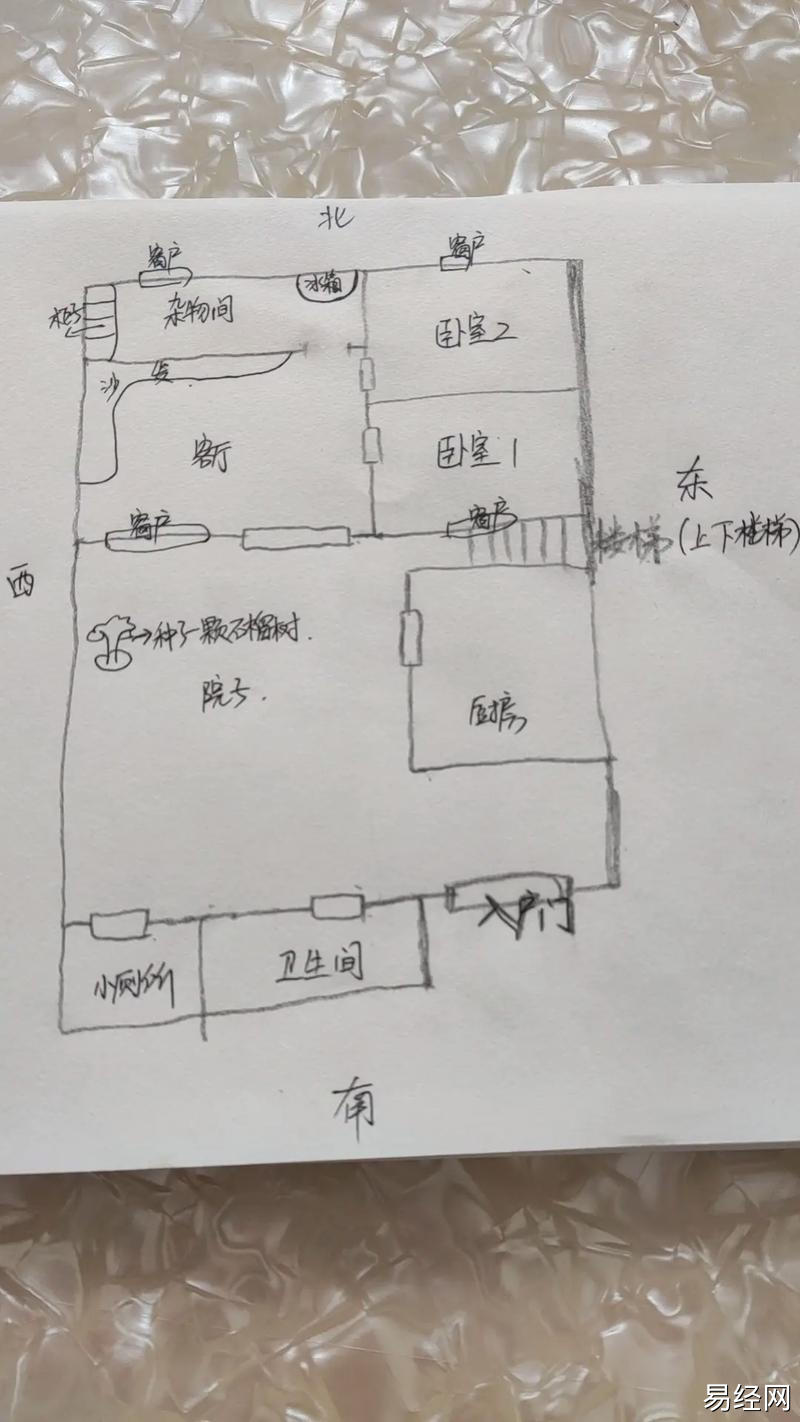 北
窗户
窗户
冰箱
柜子
杂物间
卧室2
沙发
客厅
卧室1
东
窗户
窗户
楼梯(上下楼梯)
西
种了一颗石榴树.
院子.
厨房
入户门
小厕所
卫生间
南
易经网